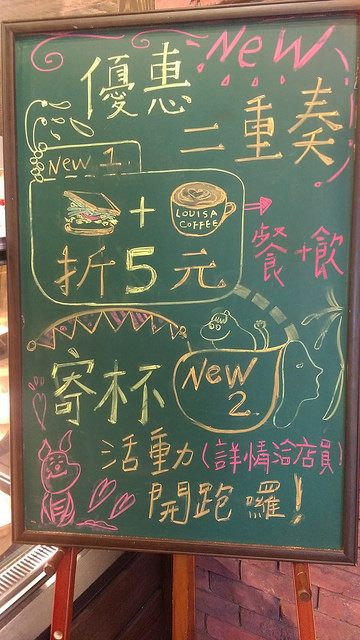 New
優惠
二重奏
New 1.
+
LOUISA
COFFEE
折5元
餐+飲
寄杯
New
2.
活動(詳情洽店員)
開跑囉!